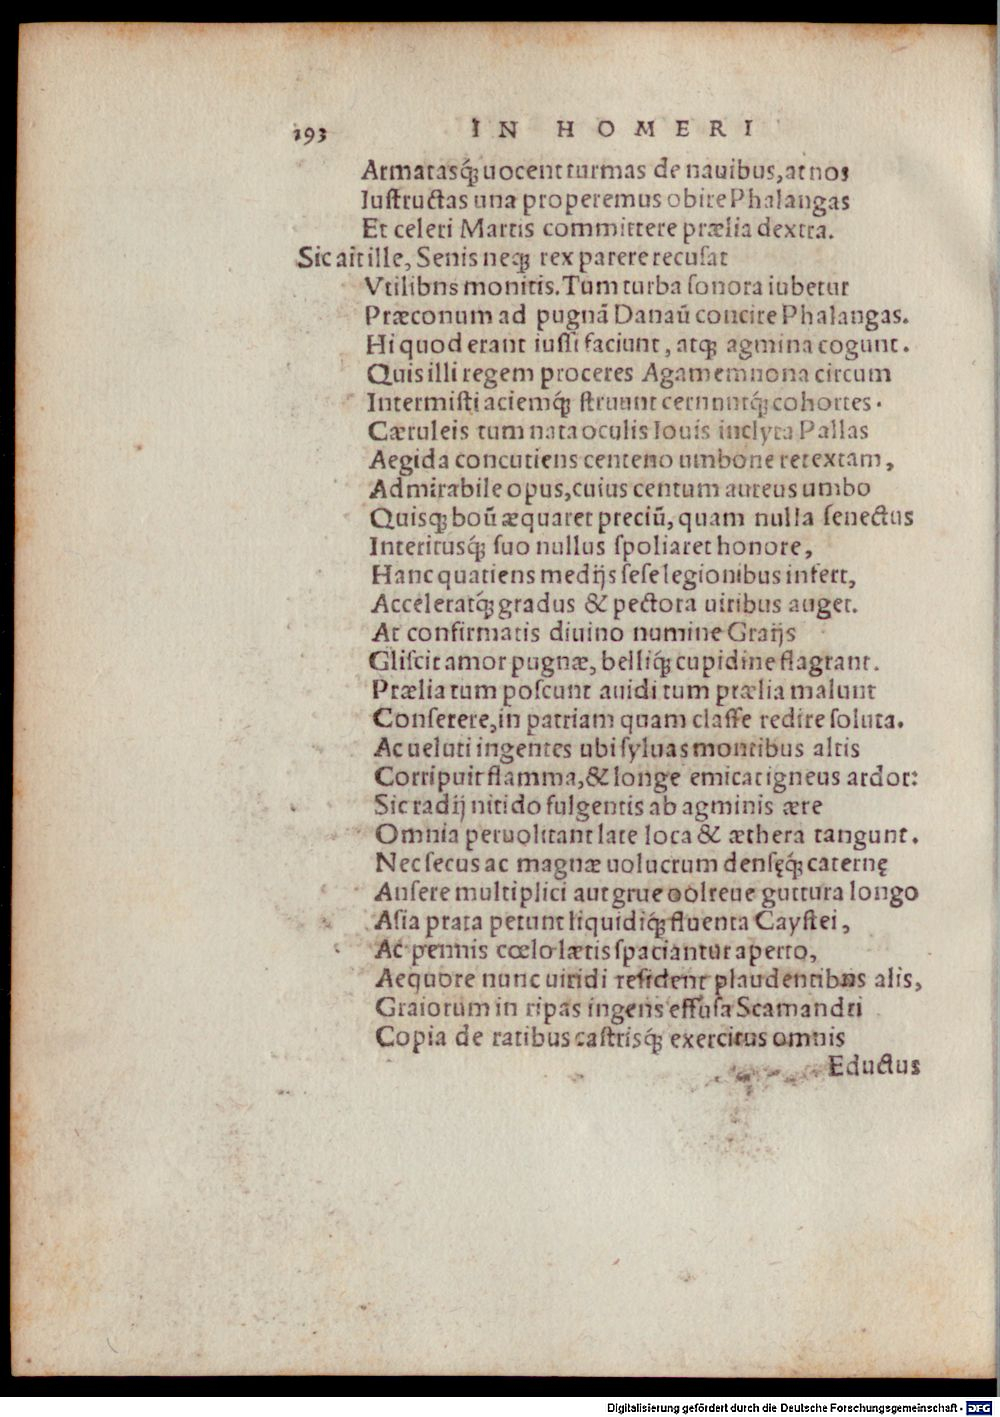 193 IN HOMERI
Armatasq́; uocent turmas de nauibus, at nos
Iustructas una properemus obire Phalangas
Et celeri Martis committere prælia dextra.
Sic ait ille, Senis neq; rex parere recusat
Vtilibns monitis. Tum turba sonora iubetur
Præconum ad pugnā Danaū concire Phalangas.
Hi quod erant iussi faciunt, atq; agmina cogunt.
Quis illi regem proceres Agamemnona circum
Intermisti aciemq́; struunt cernuntq́; cohortes.
Cæruleis tum nata oculis Iouis inclyta Pallas
Aegida concutiens centeno umbone retextam,
Admirabile opus, cuius centum aureus umbo
Quisq; boū æquaret preciū, quam nulla senectus
Interitusq́; suo nullus spoliaret honore,
Hanc quatiens medijs sese legionibus infert,
Acceleratq́; gradus & pectora uiribus auget.
At confirmatis diuino numine Graijs
Gliscit amor pugnæ, belliq́; cupidine flagrant.
Prælia tum poscunt auidi tum prælia malunt
Conserere, in patriam quam classe redire soluta.
Ac ueluti ingentes ubi syluas montibus altis
Corripuit flamma, & longe emicat igneus ardor:
Sic radij nitido fulgentis ab agminis ære
Omnia peruolitant late loca & æthera tangunt.
Nec secus ac magnæ uolucrum densęq́; caternę
Ansere multiplici aut grue oolreue guttura longo
Asia prata petunt liquidiq́; fluenta Caystei,
Ac pennis cœlo lætis spaciantur aperto,
Aequore nunc uiridi resident plaudentibus alis,
Graiorum in ripas ingens effusa Scamandri
Copia de ratibus castrisq́; exercitus omnis
Eductus
Digitalisierung gefördert durch die Deutsche Forschungsgemeinschaft - DFG